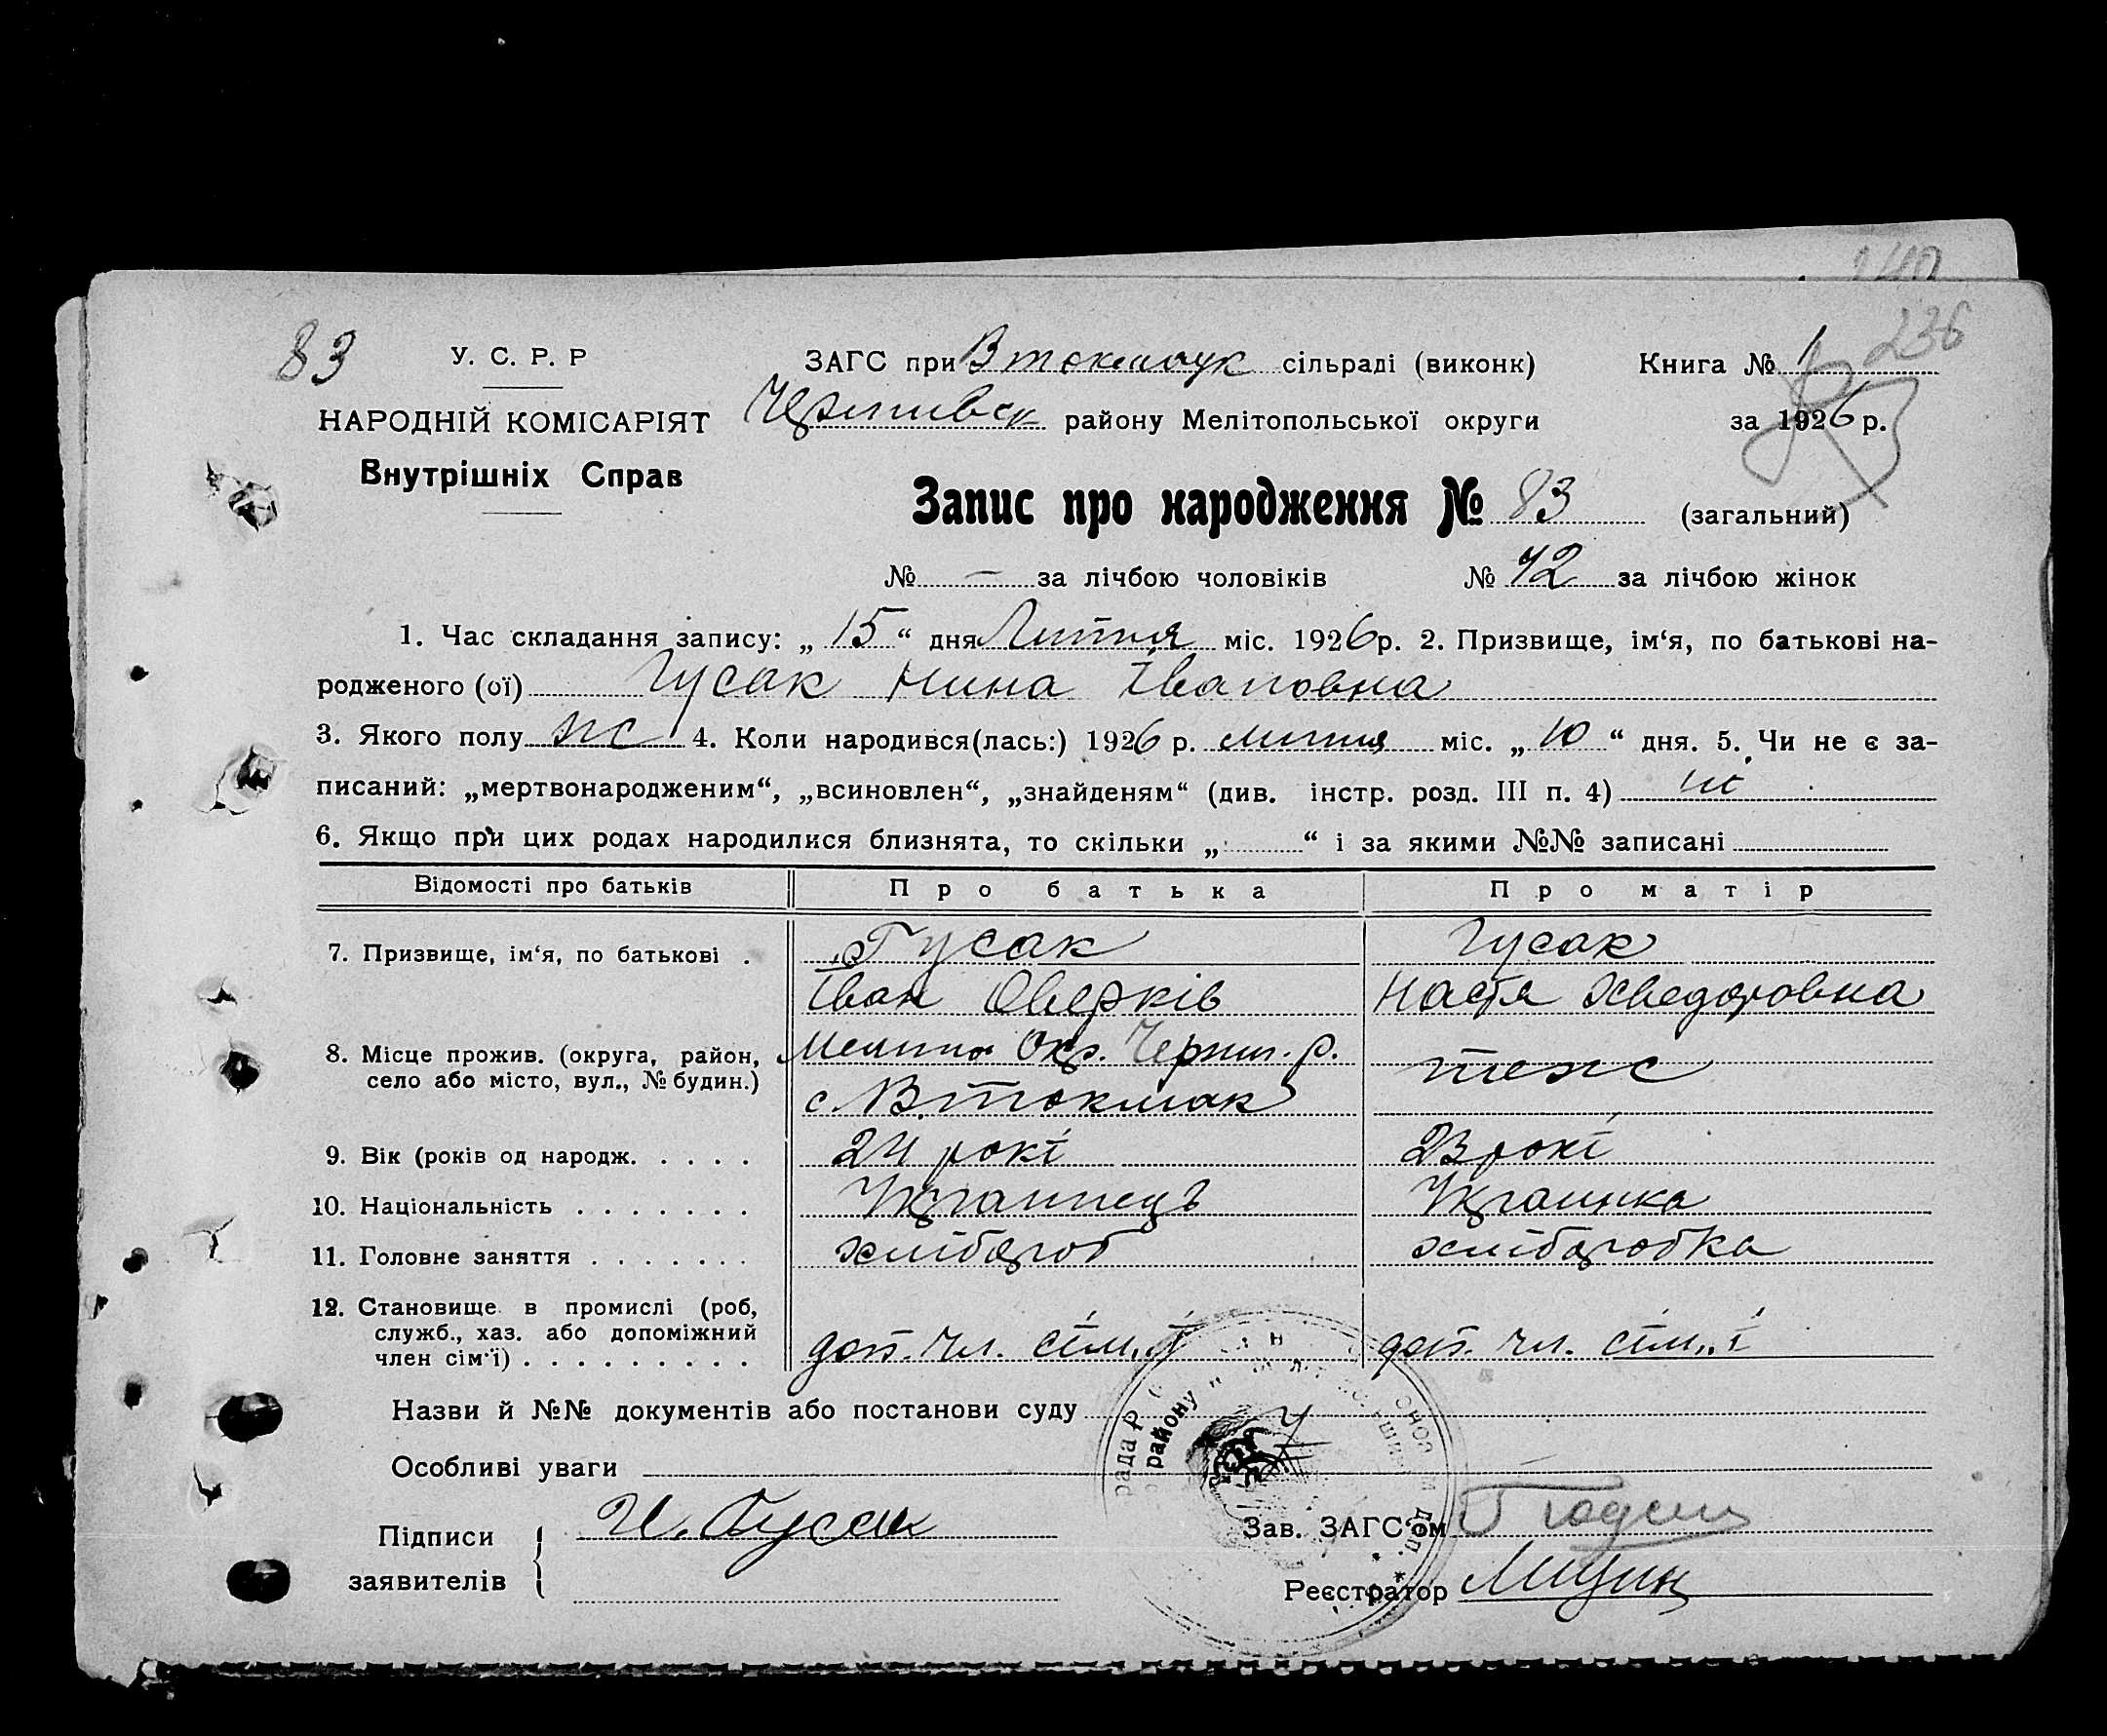 140
236
83 У. С. Р. Р ЗАГС при Втокмачук сільраді (виконк) Книга № 1
НАРОДНІЙ КОМІСАРІЯТ Черниивск району Мелітопольської округи за 1926 р.
Внутрішніх Справ
Запис про народження № 83 (загальний)
№ — за лічбою чоловіків № 42 за лічбою жінок
1. Час складання запису: „ 15 “ дня Липня міс. 1926 р. 2. Призвище, ім‘я, по батькові на-
родженого (ої) Гусак Нина Івановна
3. Якого полу ж 4. Коли народився(лась:) 1926 р. липня міс. „ 10 “ дня. 5. Чи не є за-
писаний: „мертвонародженим“, „всиновлен“, „знайденям“ (див. інстр. розд. III п. 4) ні
6. Якщо при цих родах народилися близнята, то скільки „ “ і за якими №№ записані
Відомості про батьків Про батька Про матір
7. Призвище, ім‘я, по батькові . Гусак Гусак
Іван Оверків Настя Хведоровна
8. Місце прожив. (округа, район, Мелито Окр. Черниг. р. теж
село або місто, вул., № будин.) с В.токмак
9. Вік (років од народж. . . . . 24 рокі 23 рокі
10. Національність . . . . . . . Українець Українка
11. Головне заняття . . . . . . . хлібороб хліборобка
12. Становище в промислі (роб,
служб., хаз. або допоміжний доп. чл. сім„ї доп. чл. сім„ї
член сім‘ї) . . . . . . . . .
Назви й №№ документів або постанови суду
Особливі уваги
Підписи И. Гусак Зав. ЗАГС‘ом
заявителів Реєстратор
рада Р
району